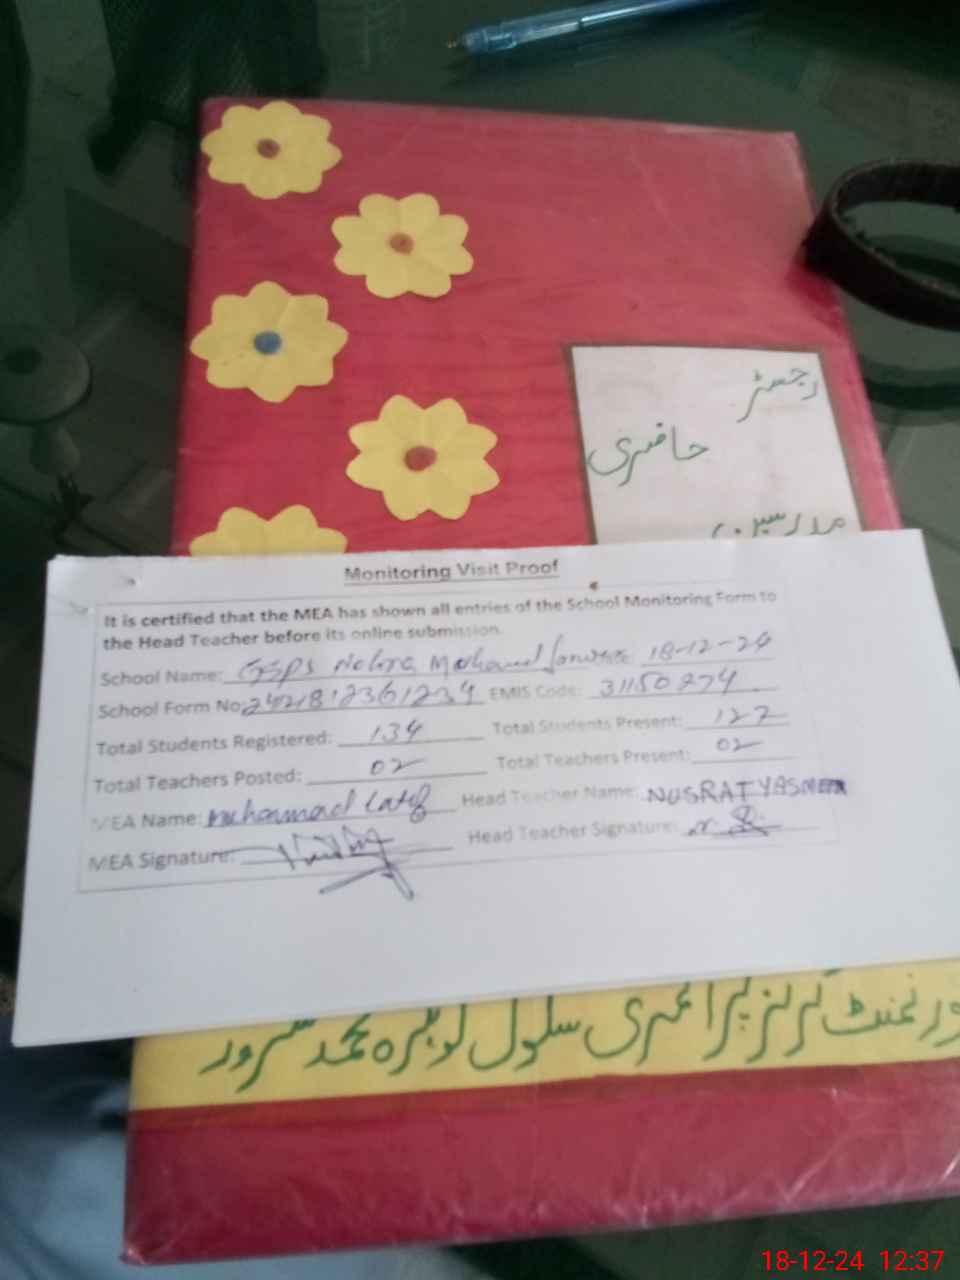 رجسٹر
حاضری
مدرسین
Monitoring Visit Proof
It is certified that the MEA has shown all entries of the School Monitoring Form to
the Head Teacher before its online submission.
School Name: GGPS Mohammad 18-12-24
School Form No: EMIS Code: 31150274
Total Students Registered: 134 Total Students Present: 127
Total Teachers Posted: 02 Total Teachers Present: 02
MEA Name: Muhammad Latif Head Teacher Name: NUSRAT YASMEEN
MEA Signature: Head Teacher Signature:
گرلز پرائمری سکول لوہڑہ محمد سرور
18-12-24 12:37